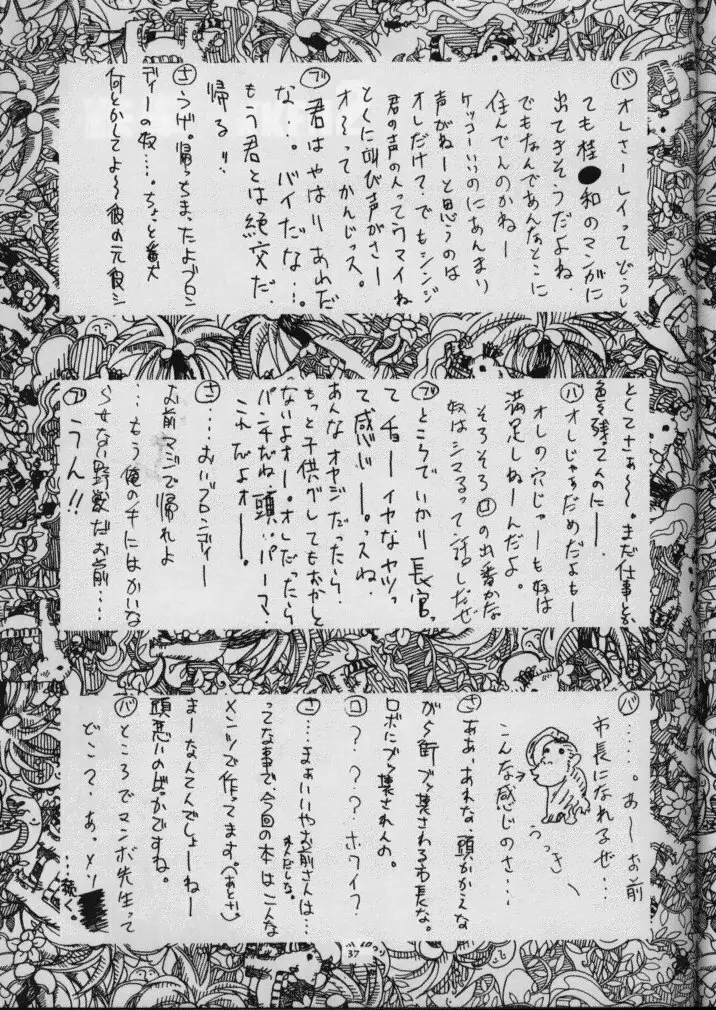 ㋩オレさーレイってどうし
ても桂●和のマンガに
出てきそうだよね.
でもなんであんなとこに
住んでんのかねー
ケッコーいいのにあんまり
声がねーと思うのは
オレだけ?でもシンジ
君の声の人ってウマイね
とくに叫び声がさー
オ〜ってかんじっス。
㋫君はやはりあれだ
な…。バイだな…。
もう君とは絶交だ.
帰る!!
㋚うげ。帰っちまったよブロン
ディーの奴……。ちょと番犬
何とかしてよ〜彼の元食シ
とくてさぁ〜〜。まだ仕事とか
色々残てんのにー.
㋩オレじゃあだめだよもー
オレの穴じゃーも奴は
満足しねーんだよ。
そろそろ㋺の出番かな
奴はシマるって話しだぜ
㋫ところでいかり長官っ
てチョーイヤなヤツっ
て感じー。っスね.
あんなオヤジだったら.
もっと子供グレてもおかしと
ないよオー。オレだったら
パンチだね.頭…パーマ.
これだよオー。
㋚……おいブロンディー
お前マジで帰れよ
…もう俺の手にはかいな
らせない野獣だお前……
㋫うん!!
㋩……。あーお前
市長になれるぜ…
こんな感じのさ…
うっきー
㋚ああ、あれな、頭かかえな
がら街ブッ壊されわる市長な。
ロボにブッ壊されんの。
㋺????ホワイ?
㋚…まぁいいやお前さんは…
ってな事で、今回の本はこんな
メンツで作ってます。(あとがき)
まーなんてんでしょーねー
頭悪いのばっかですね。
㋩ところでマンボ先生って
どこ?.あ、メリ
…続く。
37